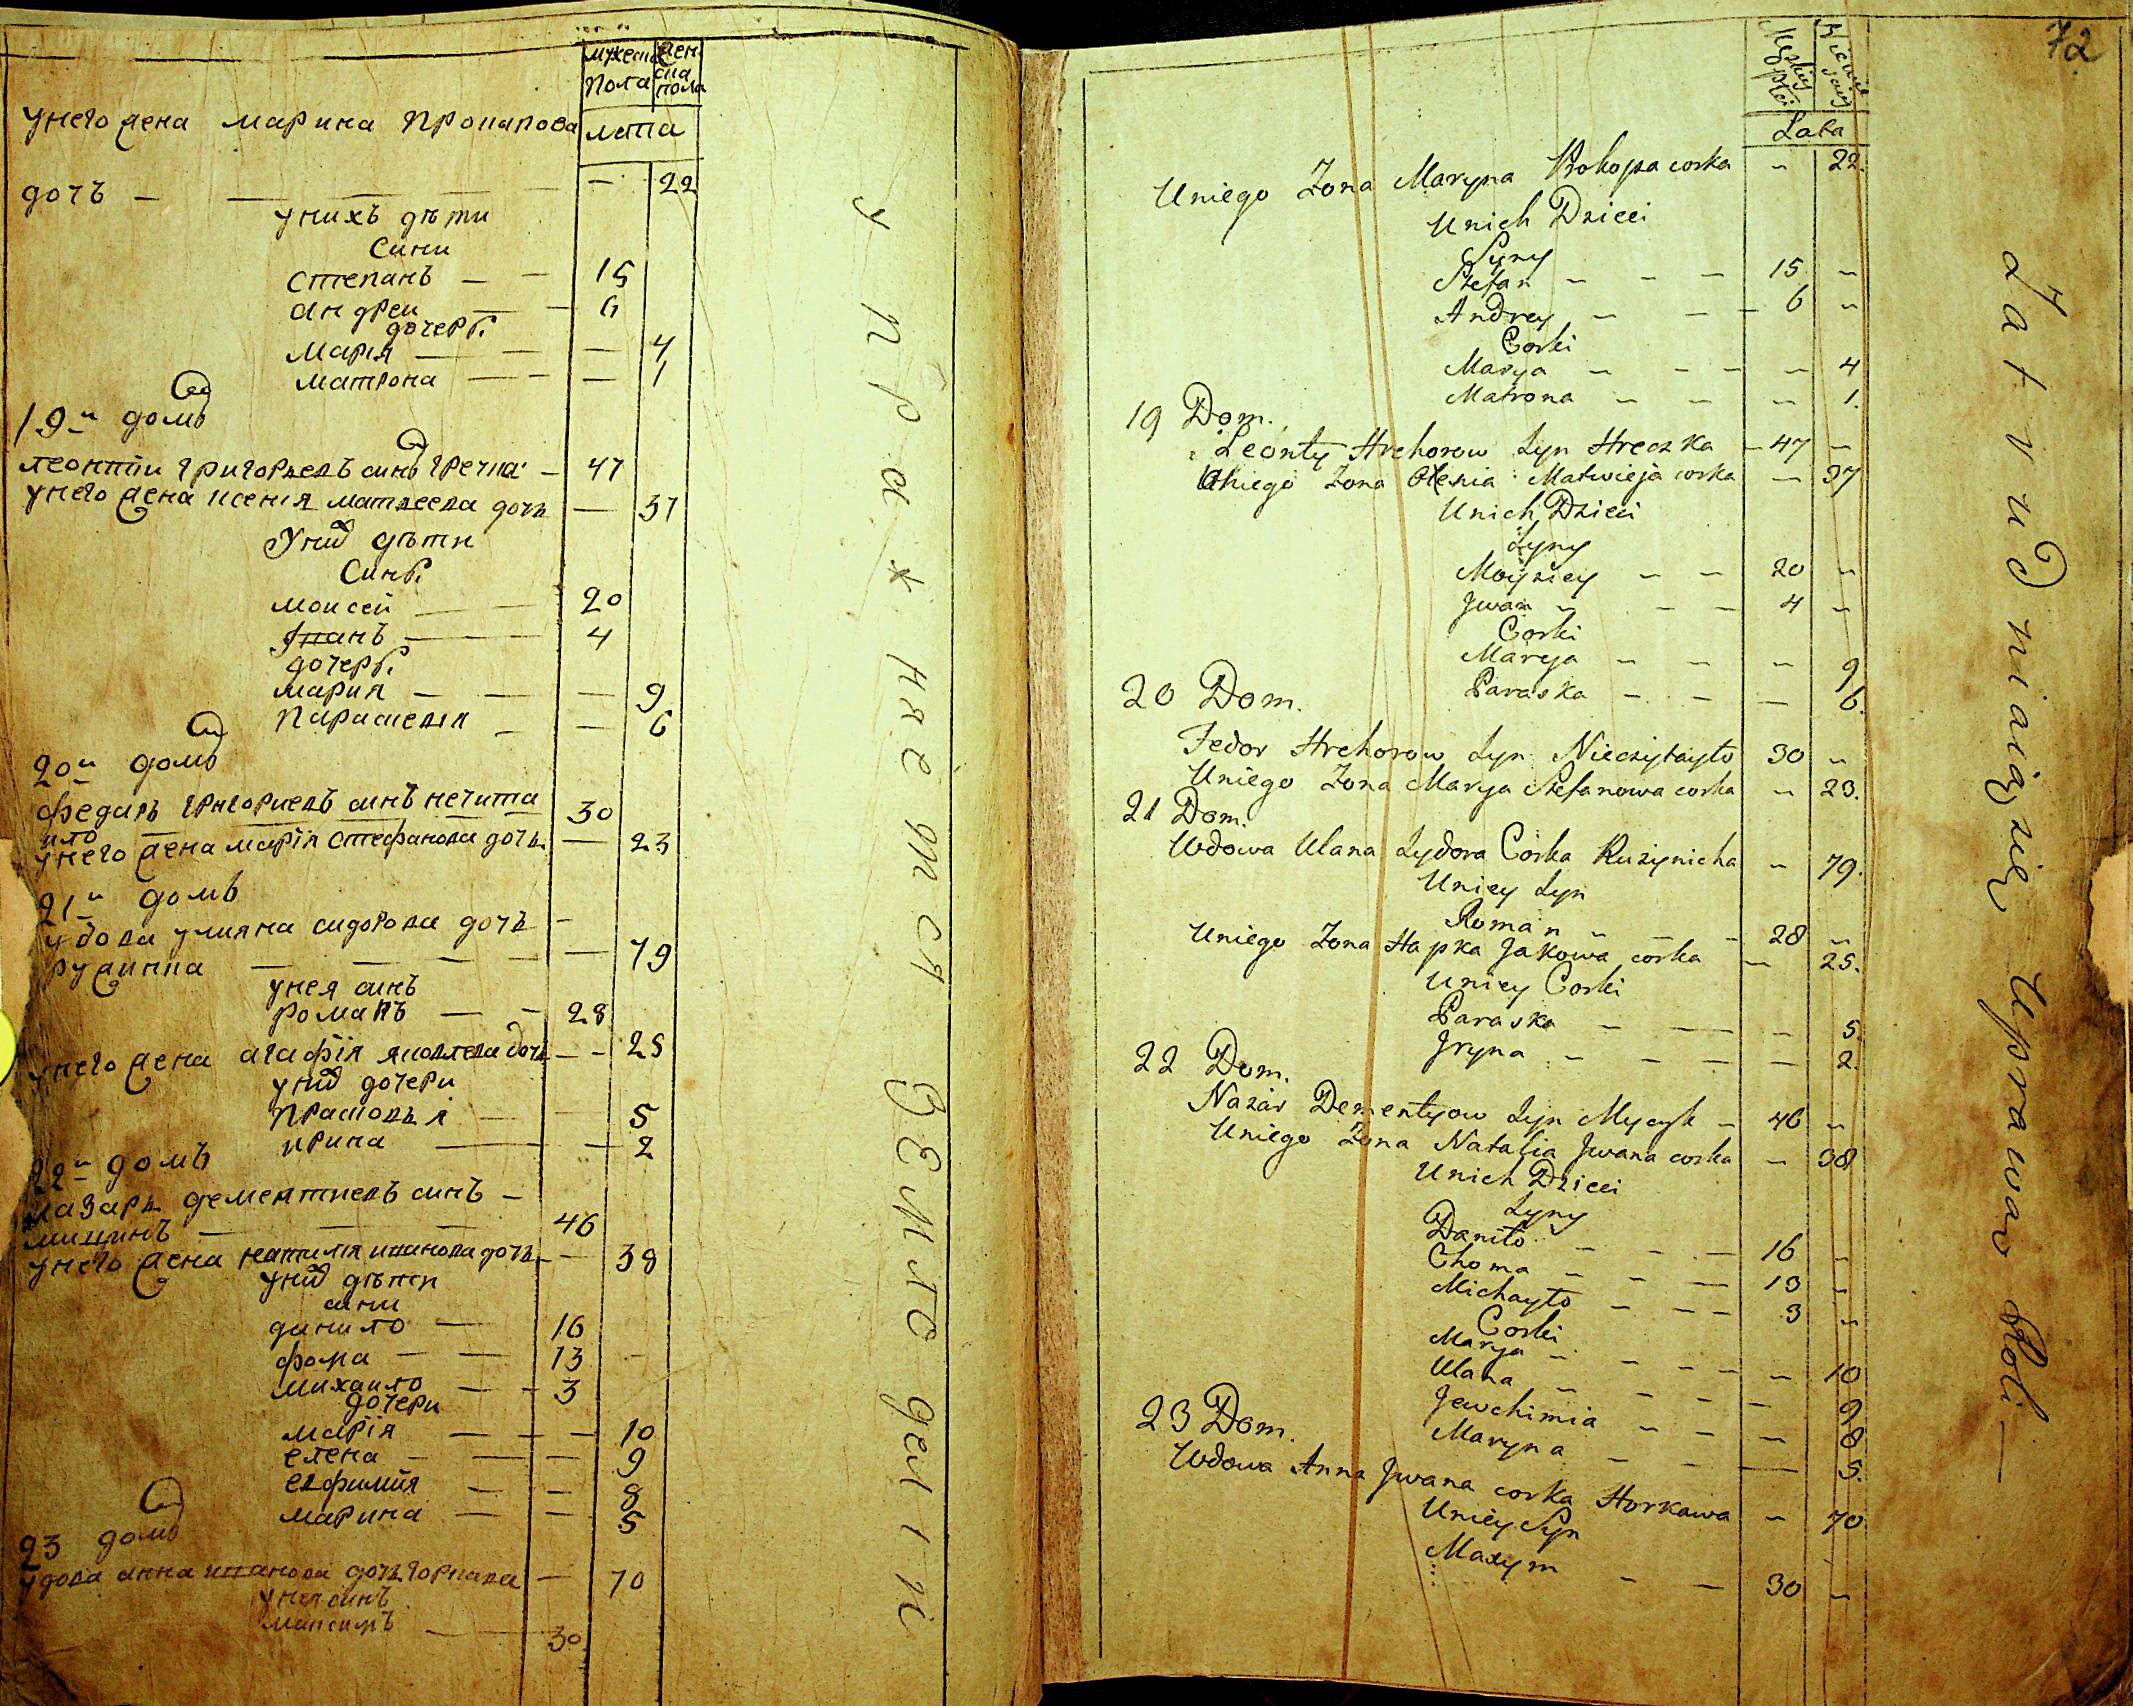 мужеска пола
женска пола
лета
у него жена марина прокапова
дочъ — — — — — — 22
у нихъ дѣти
сини
степанъ — — 15
андреи — — 6
дочери
Марія — — — 4
матрона — — — 1
19й домъ
леонтїи григорьевъ синъ гречка — 47
у него жена ксенія матвеева дочь — 37
у них дѣти
сини
моисей — — 20
іванъ — — 4
дочери
мария — — — 9
парасковія — — 6
20й домъ
федаръ григориевъ синъ нечита
ило — — — — — 30
у него жена марїя стефанова дочь — 23
21й домъ
удова улияна сидорова дочь —
ружинка — — — — — 79
у нея синъ
романъ — — 28
у него жена агафїя яковлева дочь — — 25
у них дочери
прасковья — — 5
ирина — — 2
22й домъ
назаръ дементиевъ синъ —
мицикъ — — — 46
у него жена наталия иванова дочь — — 38
у них дѣти
сини
данило — 16
фома — — 13
михаило — — 3
дочери
марїя — — — 10
елена — — — 9
евфимия — — 8
марина — — 5
23 домъ
удова анна иванова дочь горкава — 70
у нея синъ
максимъ — — 30
упражняется земледелии
72
Męskiey płci
Żeńskiey
Lata
Uniego Żona Maryna Prokopa corka — 22.
Unich Dzieci
Syny
Stefan — — — 15 —
Andrey — — — 6 —
Corki
Marya — — — — 4
Matrona — — — 1.
19 Dom.
Leonty Hrehorow Syn Hreczka — 47 —
Uniego Żona Xienia Matwieja corka — 37
Unich Dzieci
Syny
Moyżiey — — 20 —
Jwan — — — 4 —
Corki
Marya — — — 9
Paraska — — — 6.
20 Dom.
Fedor Hrehorow Syn Nieczytayło 30 —
Uniego Żona Marya Stefanowa corka — 23.
21 Dom.
Wdowa Ulana Sydora Corka Rużynicha — 79.
Uniey Syn
Roman — — — 28 —
Uniego Żona Hapka Jakowa corka — 25.
Uniey Corki
Paraska — — — 5.
Jryna — — — — 2.
22 Dom.
Nazar Dementyow Syn Mycyk — 46 —
Uniego Żona Natalia Jwana corka — 38
Unich Dzieci
Syny
Daniło — — — 16 —
Choma — — — 13 —
Michayło — — — 3 —
Corki
Marya — — — — — 10
Ulana — — — — 9
Jewchimia — — — 8
Maryna — — — 5.
23 Dom.
Wdowa Anna Jwana corka Horkawa — 70
Uniey Syn
Maxym — — 30 —
Zatrudniaią się Uprawą Roli —